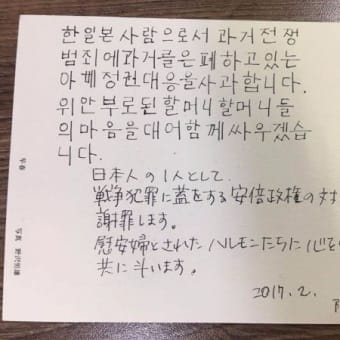 한일본사람으로서과거전쟁
범죄에과거를은폐하고있는
아베정권대응을사과합니다.
위안부로된할머니할머니들
의마음을대어함께싸우겠습
니다.
日本人の1人として、
戦争犯罪に蓋をする安倍政権の対
謝罪します。
慰安婦とされたハルモニたちに心を
共に斗います。
2017.2.